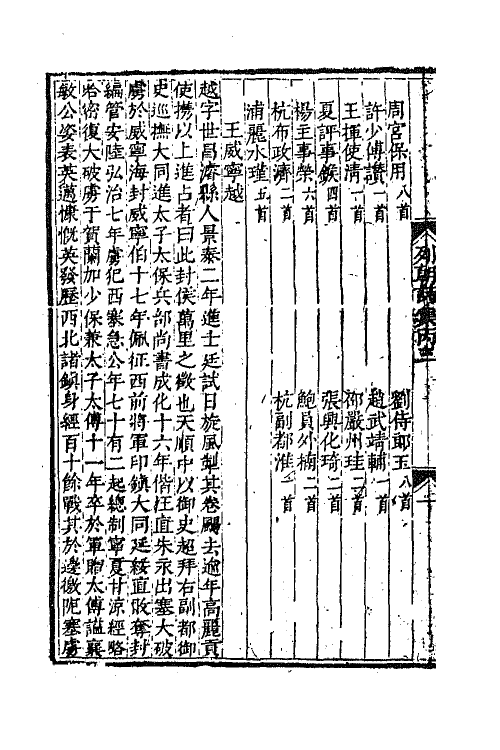 列朝詩集丙三
二
周宮保用八首
劉侍郎玉八首
許少傅讚一首
趙武靖輔一首
王揮使清一首
邵嚴州珪二首
夏評事鍭四首
張興化琦二首
楊主事榮六首
鮑員外楠二首
杭布政濟二首
杭副都淮一首
浦麗水瑾五首
王威寧越
越字世昌濬縣人景泰二年進士廷試日旋風掣其卷颺去逾年高麗貢
使攜以上進占者曰此封侯萬里之徵也天順中以御史超拜右副都御
史巡撫大同進太子太保兵部尚書成化十六年偕汪直朱永出塞大破
虜於威寧海封威寧伯十七年佩征西前將軍印鎮大同延綏直敗奪封
編管安陸弘治七年虜犯西塞急公年七十有二起總制寧夏甘涼經略
哈密復大破虜于賀蘭加少保兼太子太傅十一年卒於軍贈太傅謚襄
敏公姿表英邁慷慨英發歷西北諸鎮身經百十餘戰其於邊徼阨塞虜